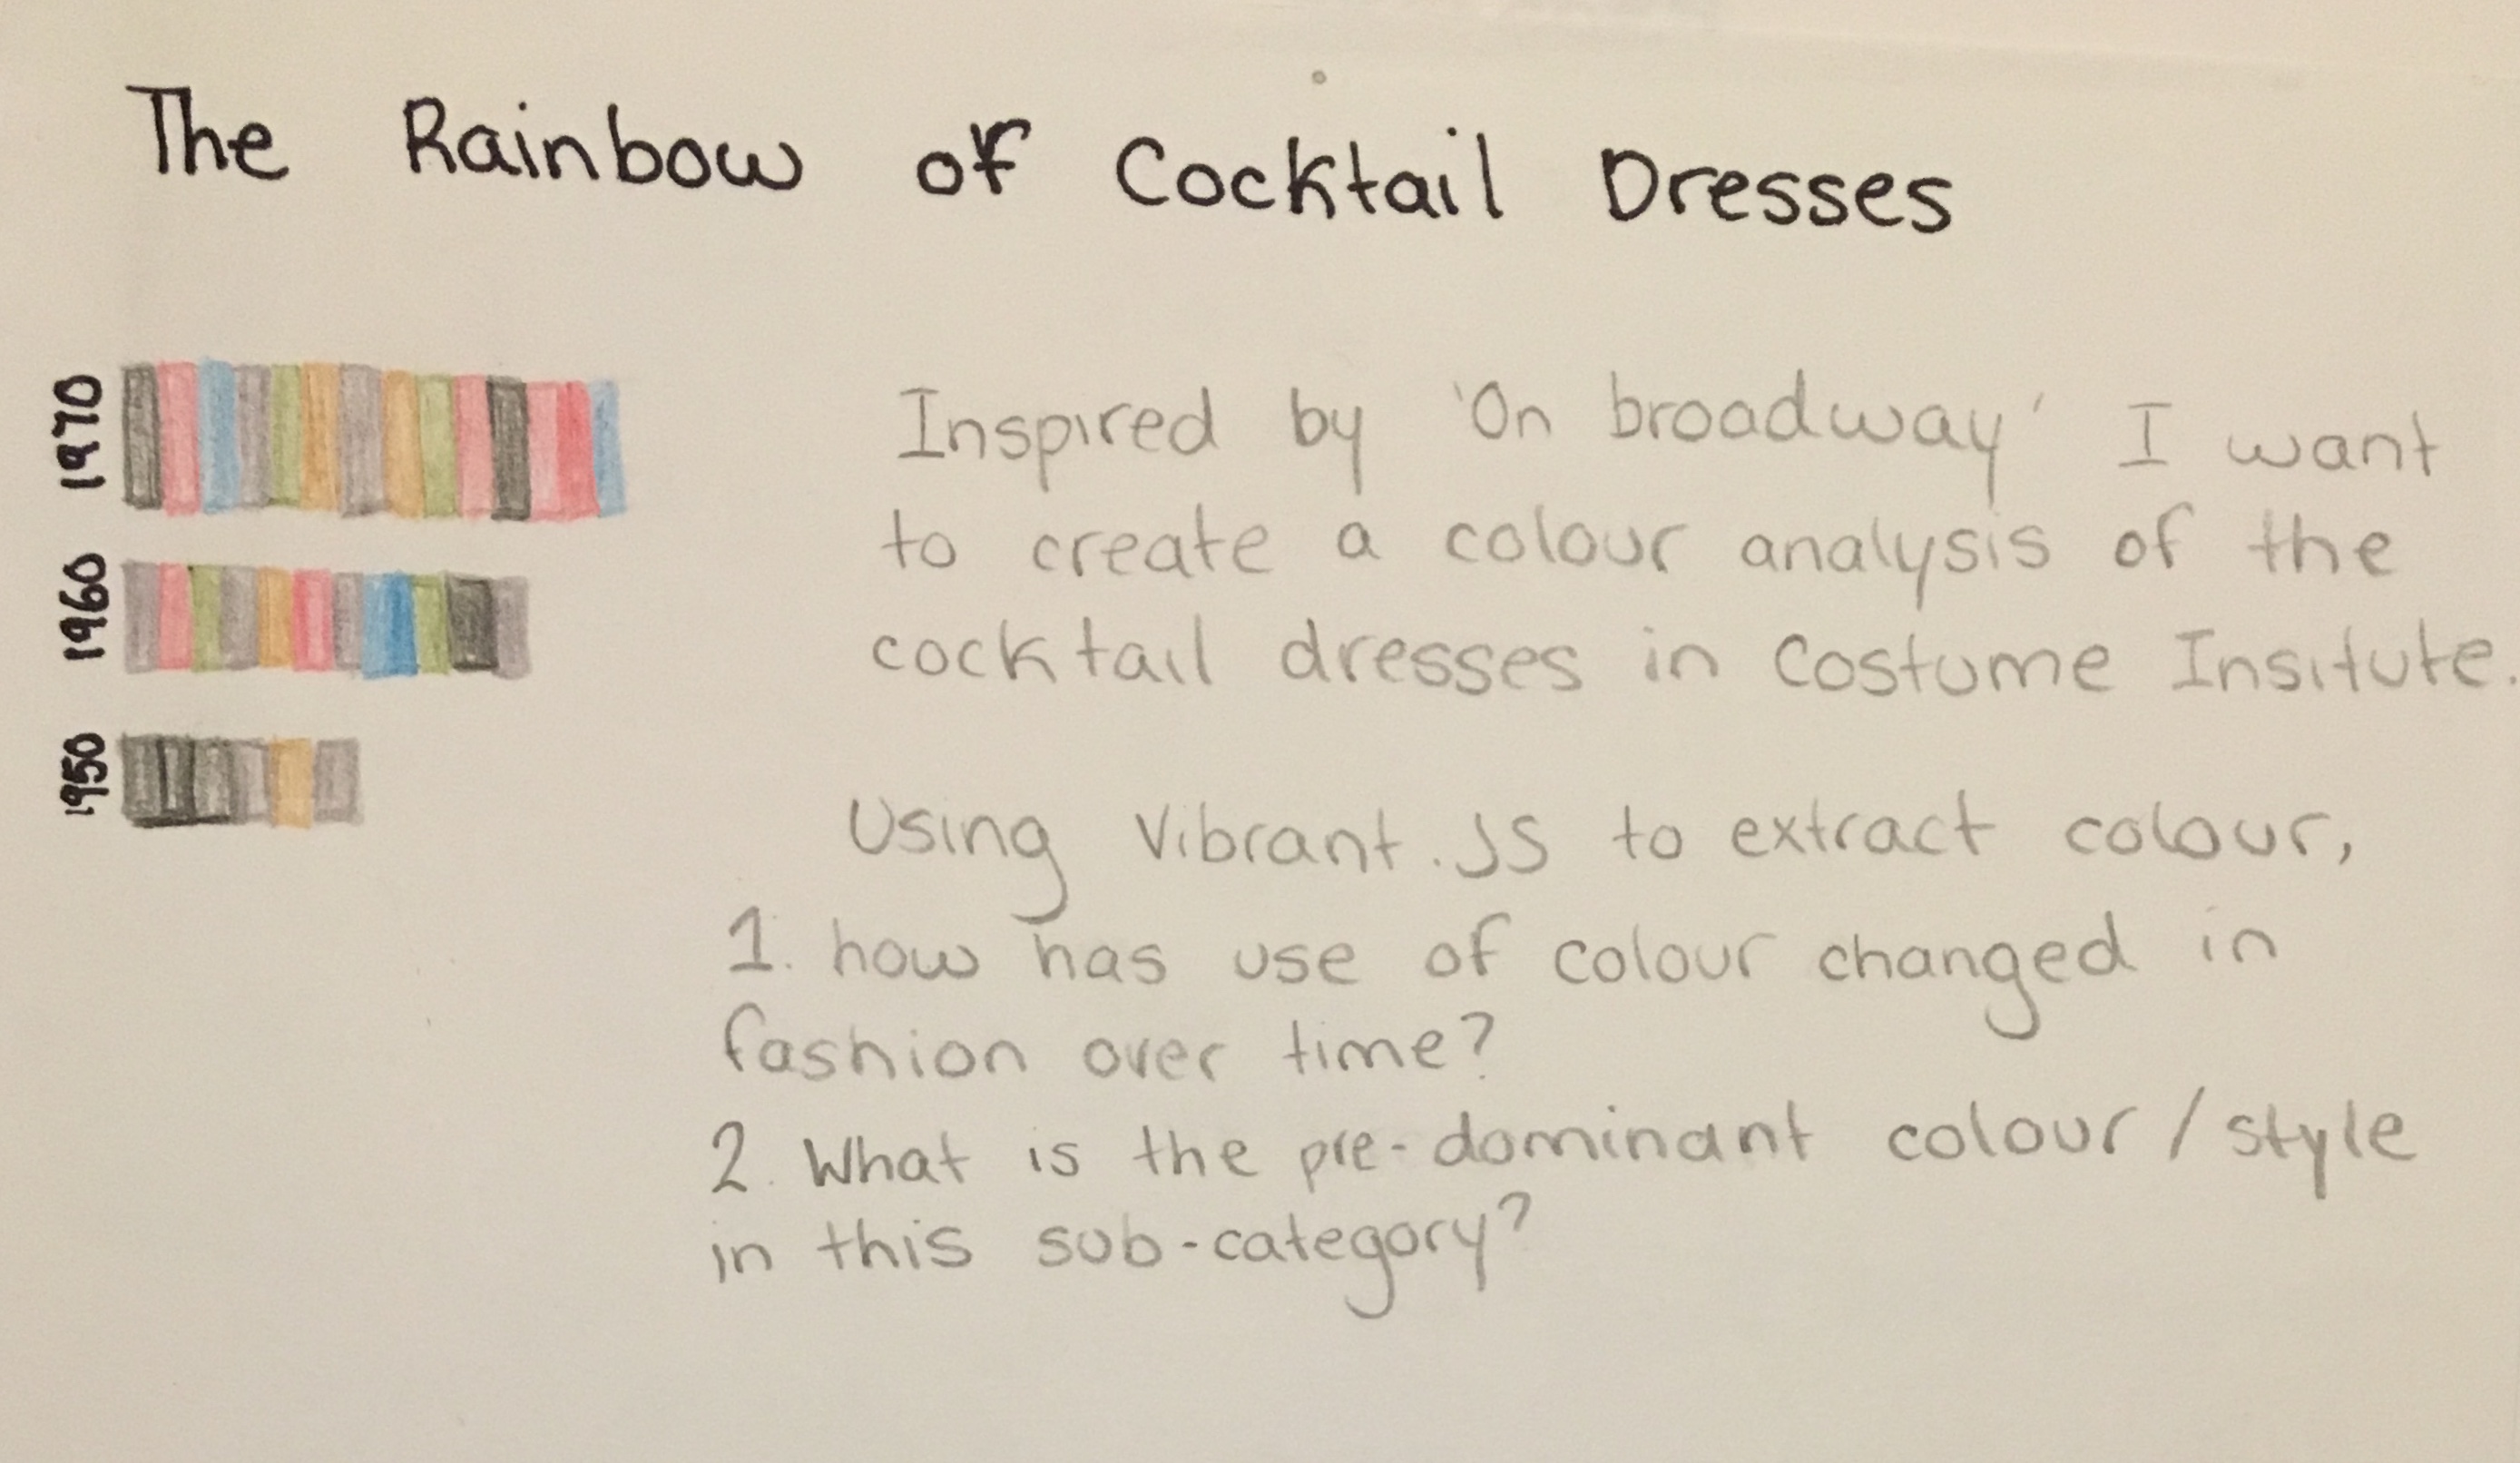 The Rainbow of Cocktail Dresses
1970
1960
1950
Inspired by 'On broadway' I want
to create a colour analysis of the
cocktail dresses in Costume Insitute.
Using Vibrant.JS to extract colour,
1. how has use of colour changed in
fashion over time?
2. What is the pre-dominant colour/style
in this sub-category?